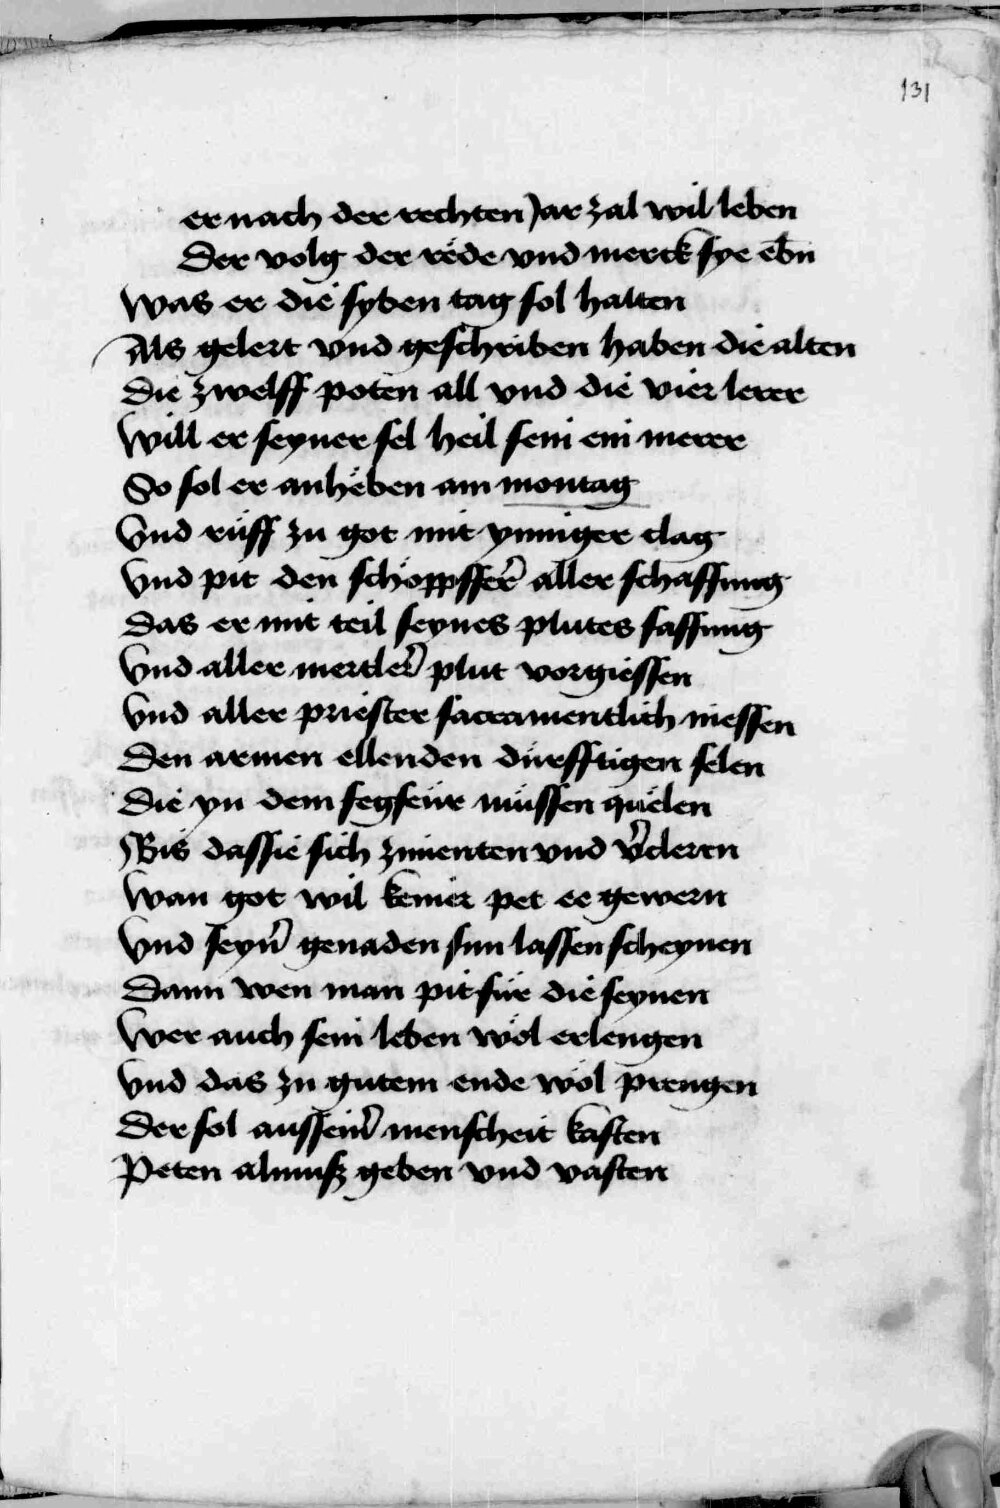 131
er nach der rechten Jar zal wil leben
Der volg der rede vnd merck sye ebn
Was er die syben tag sol halten
Als gelert vnd geschriben haben die alten
Die zwelff poten all vnd die vier lerer
Will er seyner sel heil sein ein merer
So sol er anheben am montag
Vnd rüff zu got mit ynniger clag
Vnd pit den schöppffer̄ aller schaffung
Das er mit teil seynes plutes saffung
Vnd aller mertler̄ plut vorgiessen
Vnd aller priester sacramentlich niessen
Den armen ellenden dürfftigen selen
Die yn dem fegfeür müssen quelen
Bis das sie sich vnd
Wan got wil keiner pet ee gewern
Vnd seyn̄ genaden sun lassen scheynen
Dann wen man pit für die seynen
Wer auch sein leben wöl erlengen
Vnd das zu gutem ende wöl prengen
Der sol aus sein̄ menscheit kasten
Peten almusz geben vnd vasten